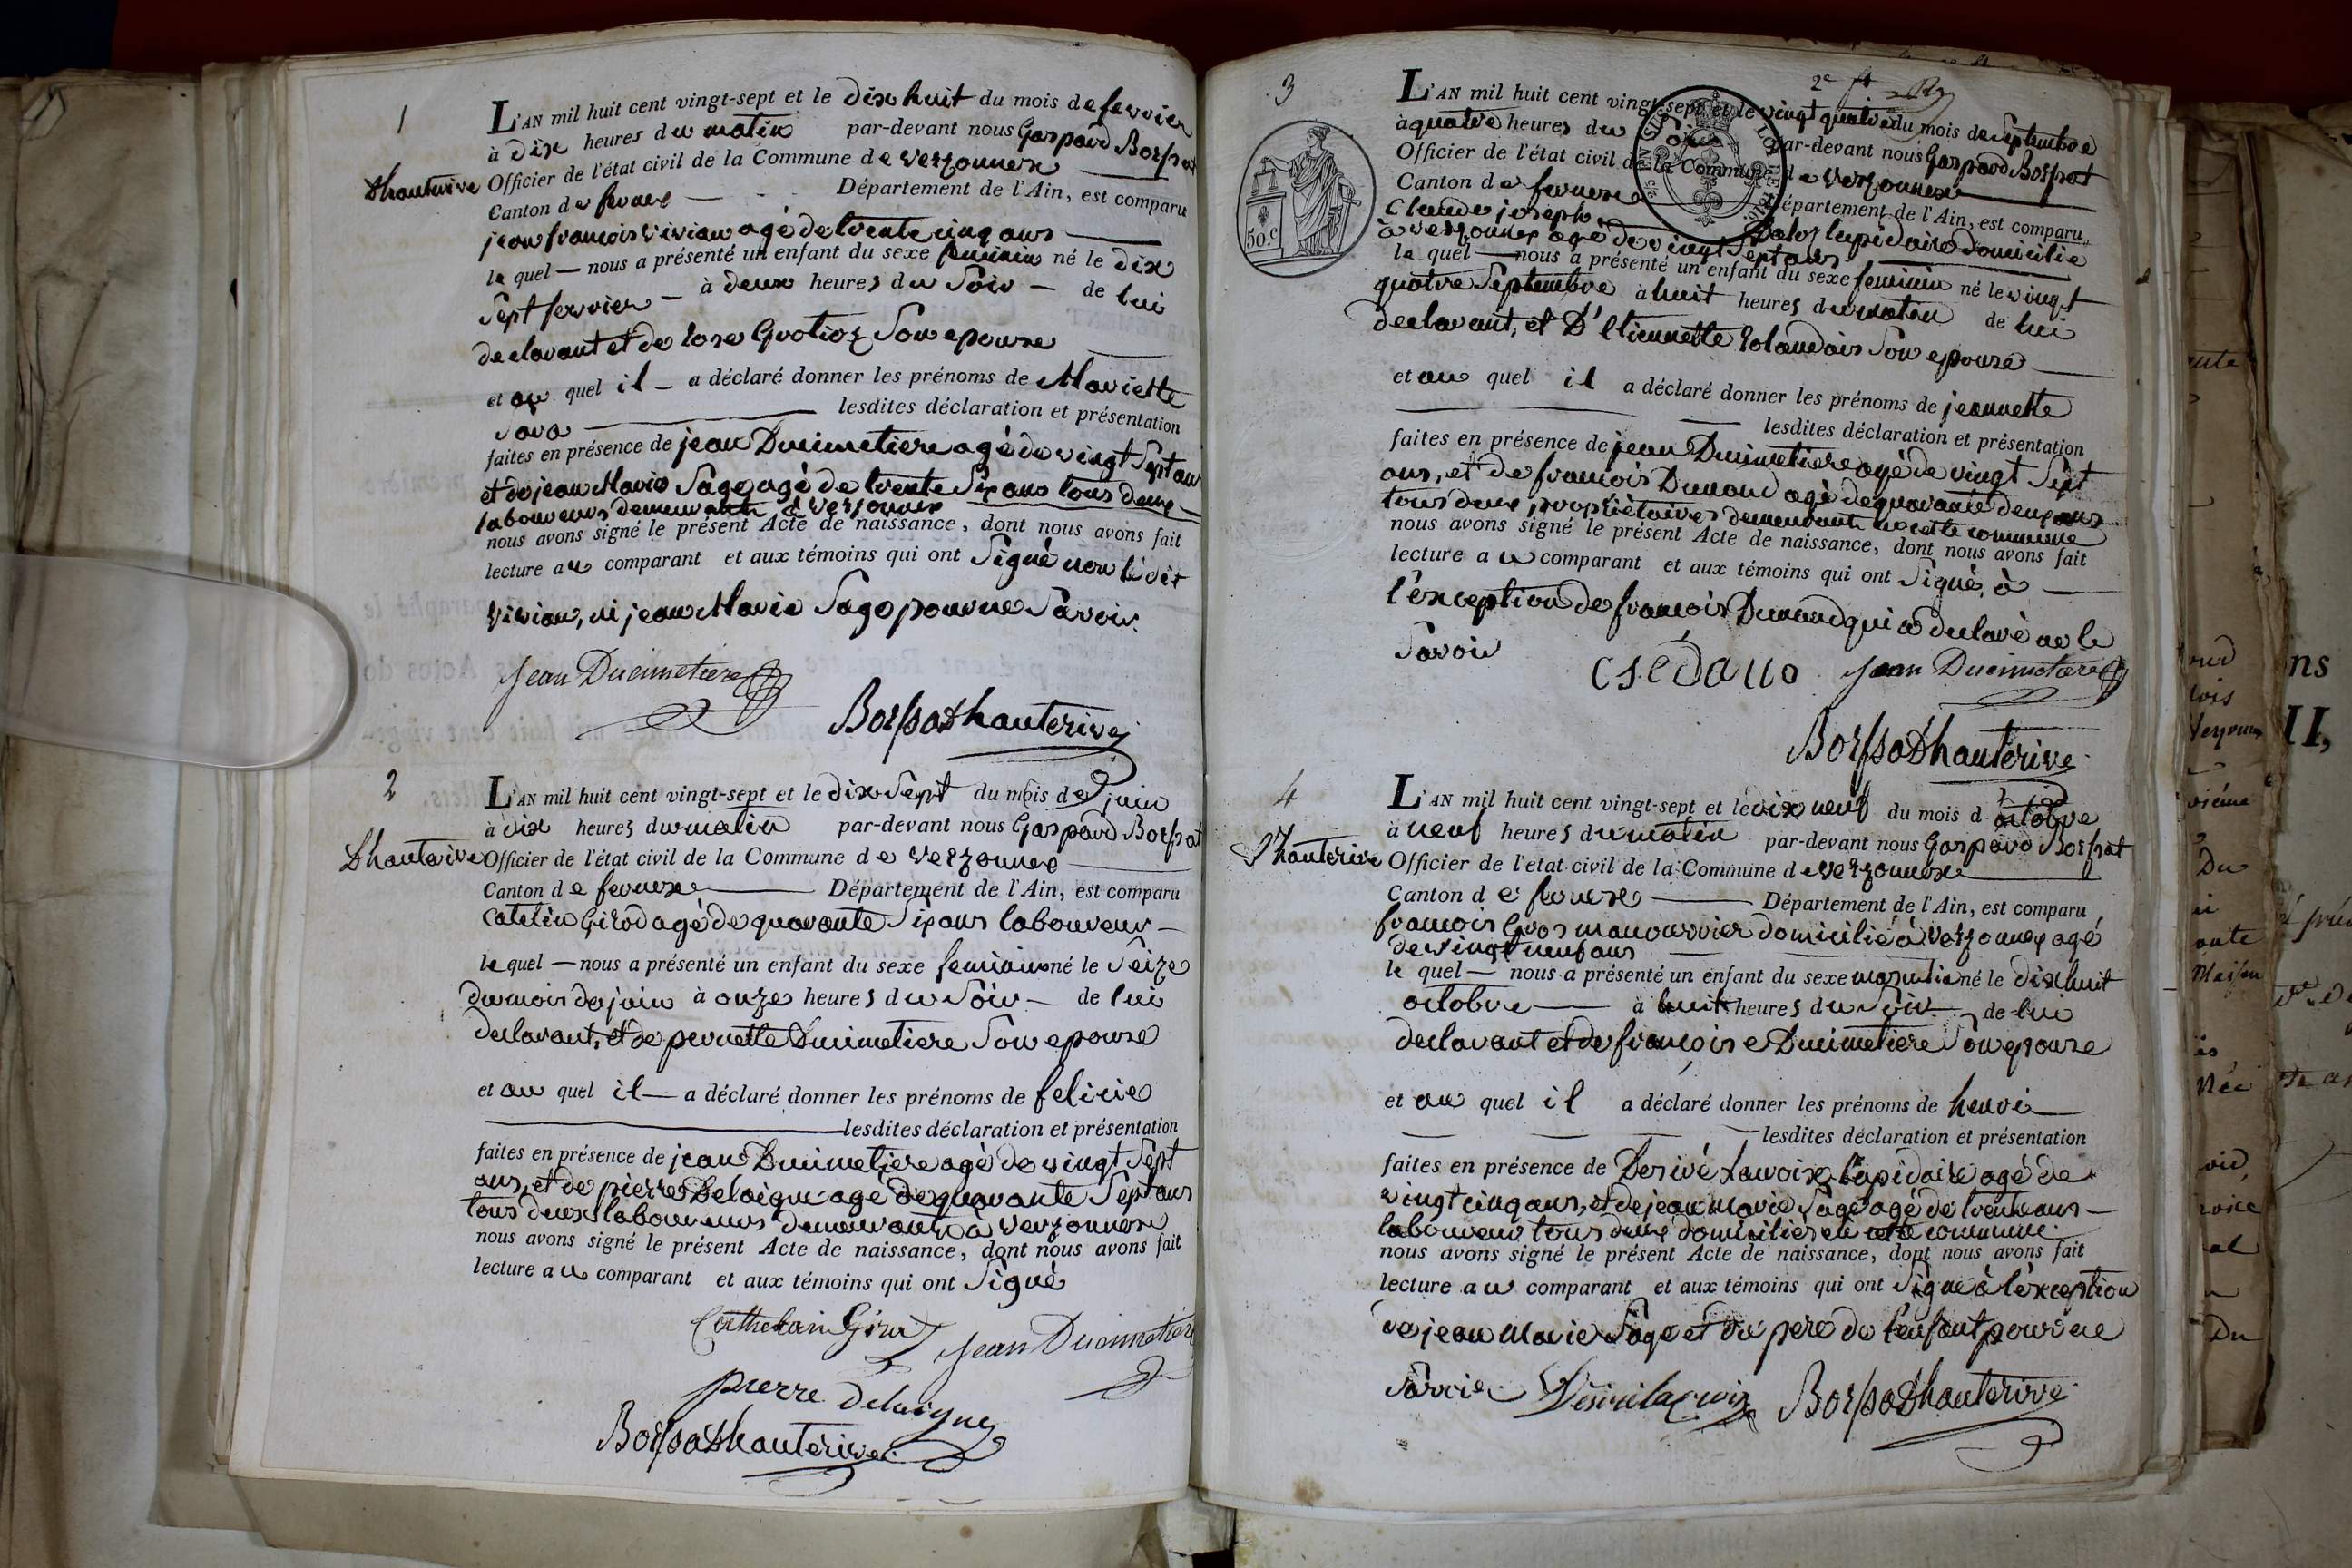 1
L'AN mil huit cent vingt-sept et le dix huit du mois de fevrier
à dix heures du matin par-devant nous Gaspard Borssat
Dhauterive Officier de l'état civil de la Commune de Verzonnex
Canton de fernex Département de l'Ain, est comparu
jean francois Vivian agé de trente cinq ans
le quel nous a présenté un enfant du sexe feminin né le dix
Sept fevrier à deux heures du Soir de lui
declarant et de rose Grotioz Son epouse
et au quel il a déclaré donner les prénoms de Mariette
lesdites déclaration et présentation
faites en présence de jean Ducimetiere agé de vingt Sept ans
et de jean Marie Sage agé de trente Six ans tous deux
laboureurs demeurants à Verzonnex
nous avons signé le présent Acte de naissance, dont nous avons fait
lecture au comparant et aux témoins qui ont Signé non le dit
Vivian, ni jean Marie Sage pour ne Savoir.
Jean Ducimetiere
Borssat Dhauterive
2
L'AN mil huit cent vingt-sept et le dix Sept du mois de juin
à dix heures du matin par-devant nous Gaspard Borssat
Dhauterive Officier de l'état civil de la Commune de Verzonnex
Canton de fernex Département de l'Ain, est comparu
Catelin Girod agé de quarante Six ans laboureur
le quel nous a présenté un enfant du sexe feminin né le Seize
du mois de juin à onze heures du Soir de lui
declarant, et de pernette Ducimetiere Son epouse
et au quel il a déclaré donner les prénoms de felicie
lesdites déclaration et présentation
faites en présence de jean Ducimetiere agé de vingt Sept
ans, et de pierre Delaigue agé de quarante Sept ans
tous deux laboureurs demeurants à Verzonnex
nous avons signé le présent Acte de naissance, dont nous avons fait
lecture au comparant et aux témoins qui ont Signé
Cathelain Girod
Jean Ducimetiere
pierre Delaigue
Borssat Dhauterive
3
2e
L'AN mil huit cent vingt-sept et le vingt quatre du mois de Septembre
à quatre heures du Soir par-devant nous Gaspard Borssat
Officier de l'état civil de la Commune de Verzonnex
Canton de fernex Département de l'Ain, est comparu
Claude joseph lapidaire domicilié
à Verzonnex agé de vingt Sept ans
50.c
le quel nous a présenté un enfant du sexe feminin né le vingt
quatre Septembre à huit heures du matin de lui
declarant, et D'Etiennette Son epouse
et au quel il a déclaré donner les prénoms de jeannette
lesdites déclaration et présentation
faites en présence de jean Ducimetiere agé de vingt Sept
ans, et de francois Dunand agé de quarante deux ans
tous deux propriètaires demeurants en cette commune
nous avons signé le présent Acte de naissance, dont nous avons fait
lecture au comparant et aux témoins qui ont Signé, à
l'exception de francois Dunand qui a declaré ne le
Savoir
Jean Ducimetiere
Borssat Dhauterive
4
L'AN mil huit cent vingt-sept et le dix neuf du mois d'octobre
à neuf heures du matin par-devant nous Gaspard Borssat
Dhauterive Officier de l'état civil de la Commune de Verzonnex
Canton de fernex Département de l'Ain, est comparu
francois Gros manouvrier domicilié à Verzonnex agé
de vingt neuf ans
le quel nous a présenté un enfant du sexe masculin né le dix huit
octobre à huit heures du Soir de lui
declarant et de francoise Ducimetiere Son epouse
et au quel il a déclaré donner les prénoms de henri
lesdites déclaration et présentation
faites en présence de Desiré Lacroix lapidaire agé de
vingt cinq ans, et de jean Marie Sage agé de trente ans
laboureur tous deux domiciliés en cette commune.
nous avons signé le présent Acte de naissance, dont nous avons fait
lecture au comparant et aux témoins qui ont Signé à l'exception
de jean Marie Sage et du pere de l'enfant pour ne
Savoir
Desiré lacroix
Borssat Dhauterive